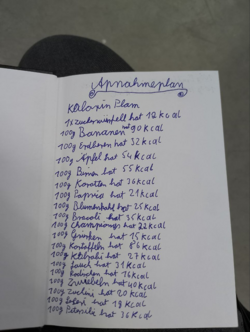 Abnahmeplan
Kalorien Plan
1x Zuckerwürfelt hat 12 kcal
100g Bananen hat 90 kcal
100g Erdberen hat 32 kcal
100g Äpfel hat 54 kcal
100g Birnen hat 55 kcal
100g Karotten hat 36 kcal
100g Paprica hat 21 kcal
100g Blumenkohl hat 25 kcal
100g Brocoli hat 35 kcal
100g Champions hat 22 kcal
100g Gurcken hat 15 kcal
100g Kartoffeln hat 86 kcal
100g Kohlrabi hat 27 kcal
100g Lauch hat 31 kcal
100g Radischen hat 16 kcal
100g Zwiebeln hat 40 kcal
100g Zuccini hat 20 kcal
100g hat 18 kcal
100g Petersilie hat 36 kcal